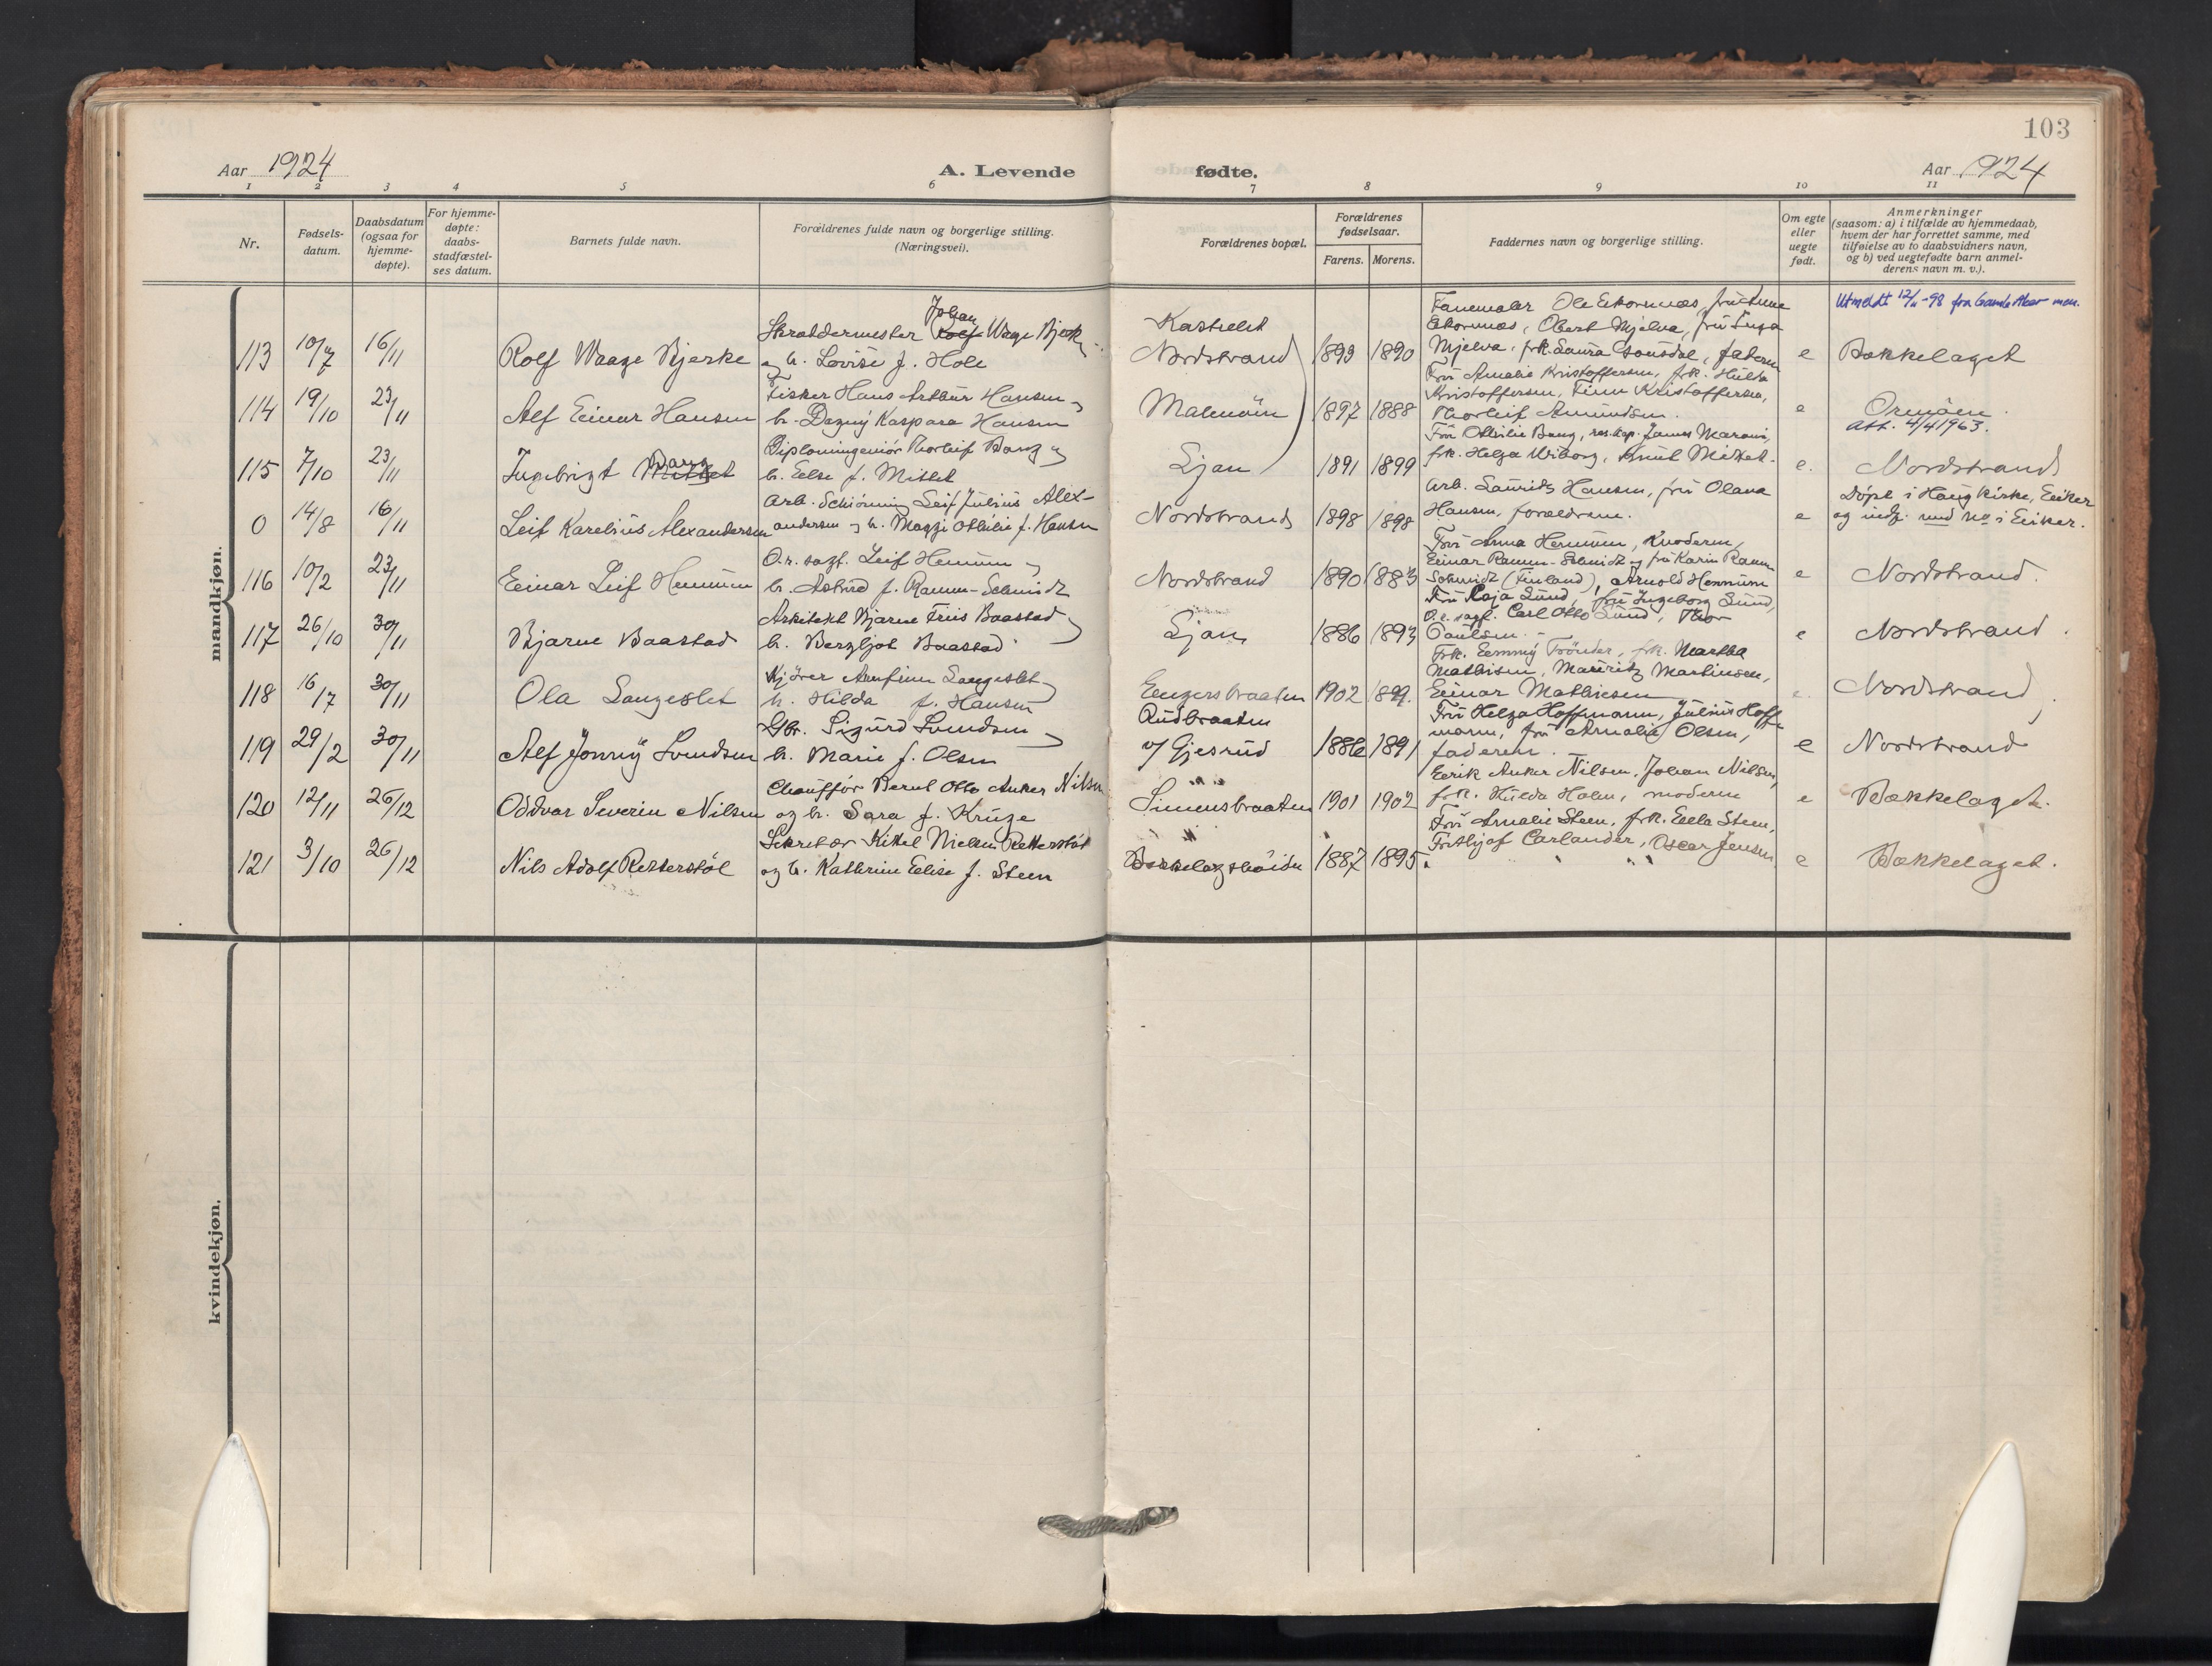 103
Aar 1924
A. Levende fødte.
Aar 1924
1 2 3 4 5 6 7 8 9 10 11
Nr.
Fødsels-
datum.
Daabsdatum
(ogsaa for
hjemme-
døpte).
For hjemme-
døpte:
daabs-
stadfæstel-
ses datum.
Barnets fulde navn.
Forældrenes fulde navn og borgerlige stilling.
(Næringsvei).
Forældrenes bopæl.
Forældrenes
fødselsaar.
Farens. Morens.
Faddernes navn og borgerlige stilling.
Om egte
eller
uegte
født.
Anmerkninger
(saasom: a) i tilfælde av hjemmedaab,
hvem der har forrettet samme, med
tilføielse av to daabsvidners navn,
og b) ved uegtefødte barn anmel-
derens navn m. v.).
mandkjøn.
113 10/7 16/11 Rolf Waage Bjerke
Skræddermester Johan Rolf Waage Bjerke
og h. Lovise f. Hole
Kastellet
Nordstrand 1899 1890
Ole Ekornnæs, fru
Ekornnæs, Obert Mjelva, fru Inga
Mjelva, frk. Laura, faderen
e
Utmeldt 12/11-98 fra Gamle Aker men.
Bækkelaget
114 19/10 23/11 Alf Einar Hansen
Fisker Hans Arthur Hansen og
h. Dagny Kaspara Hansen
Malmöen 1897 1888
Fru Amalie Kristoffersen, frk. Hulda
Kristoffersen, Finn Kristoffersen,
Thorleif Amundsen.
e
Ormöen.
Att. 4/4 1963.
115 7/10 23/11 Ingebrigt Bang Mittet
Diplomingeniör Thorleif Bang og
h. Else f. Mittet
Ljan 1891 1899
Fru Othilie Bang, res. kap. James Maroni,
frk. Helga Wiborg, Knut Mittet.
e.
Nordstrand
0 14/8 16/11 Leif Karelius Alexandersen
Arb. Schiönning Leif Julius Alex-
andersen og h. Maggi Othilie f. Hansen
Nordstrand 1898 1898
Arb. Laurits Hansen, fru Olava
Hansen, forældrene.
e
Döpt i Haug kirke, Eiker
og indf. med No i Eiker.
116 10/2 23/11 Einar Leif Hennum
O.r. sagf. Leif Hennum og
h. Astrid f. Ramm-Schmidt
Nordstrand 1890 1883
Fru Anna Hennum, moderen,
Einar Ramm-Schmidt og fru Karin Ramm
Schmidt (Finland), Arnold Hennum
e
Nordstrand.
117 26/10 30/11 Bjarne Baastad
Arkitekt Bjarne Friis Baastad og
h. Bergljot Baastad
Ljan 1886 1893
Fru Kaja Lund, fru Ingeborg Lund,
O.r. sagf. Carl Otto Lund, Thor
Paulsen.
e
Nordstrand.
118 16/7 30/11 Ola Langeslet
Kjörer Arnfinn Langeslet og
h. Hilda f. Hansen
Engersbraaten 1902 1899.
Frk. Emmy Trönder, frk. Martha
Mathisen, Mauritz Martinsen,
Einar Mathiesen
e.
Nordstrand
119 29/2 30/11 Alf Jonny Svendsen
Gbr. Sigurd Svendsen og
h. Marie f. Olsen
Rudbraaten
v/ Gjesrud 1886 1891
Fru Helga Hoffmann, Julius Hoff-
mann, fru Amalie Olsen,
faderen.
e
Nordstrand
120 12/11 26/12 Oddvar Severin Nilsen
Chauffør Bernt Otto Anker Nilsen
og h. Sara f. Kruge
Simensbraaten 1901 1902
Erik Anker Nilsen, Johan Nilsen,
frk. Hulda Holm, moderen
e
Bækkelaget.
121 3/10 26/12 Nils Adolf Retterstöl
Sekretær Kittel Nielsen Retterstöl
og h. Kathrine Elise f. Steen
Bækkelagshöiden 1887 1895
Fru Amalie Steen, frk. Ella Steen,
Fritjhof Carlander, Oscar Jensen
e
Bækkelaget.
kvindekjøn.